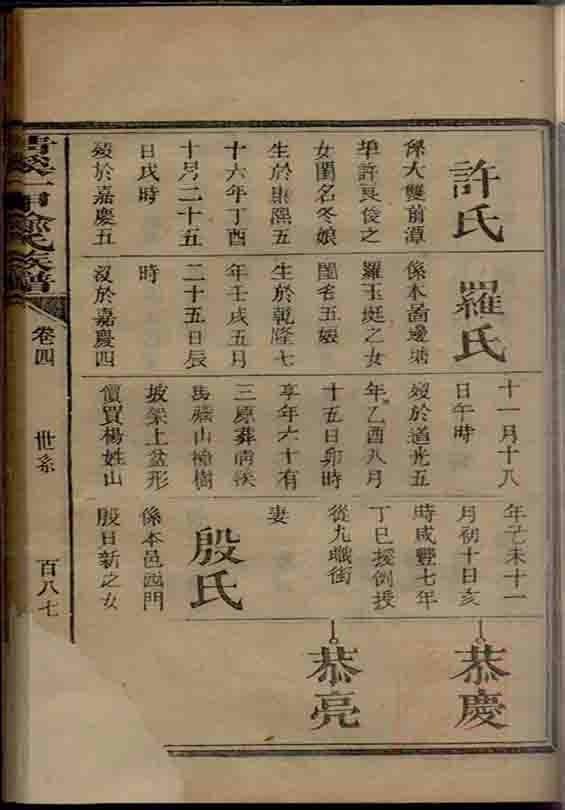 許氏
係大雙前潭
華許良俊之
女閨名冬娘
生於康熙五
十六年丁酉
十月二十五
日戌時
歿於嘉慶五
羅氏
係本邑邊塘
羅玉挺之女
閨名五娘
生於乾隆七
年壬戌五月
二十五日辰
時
沒於嘉慶四
十一月十八
日午時
歿於道光五
年乙酉八月
十五日卯時
享年六十有
三原葬南溪
馬蹄山樟樹
坡梁上盆形
價買楊姓山
年己未十一
月初十日亥
時咸豐七年
丁巳援例授
從九職銜
妻
殷氏
係本邑西門
殷日新之女
恭慶
恭亮
一甲徐氏族譜
卷四
世系
百八七